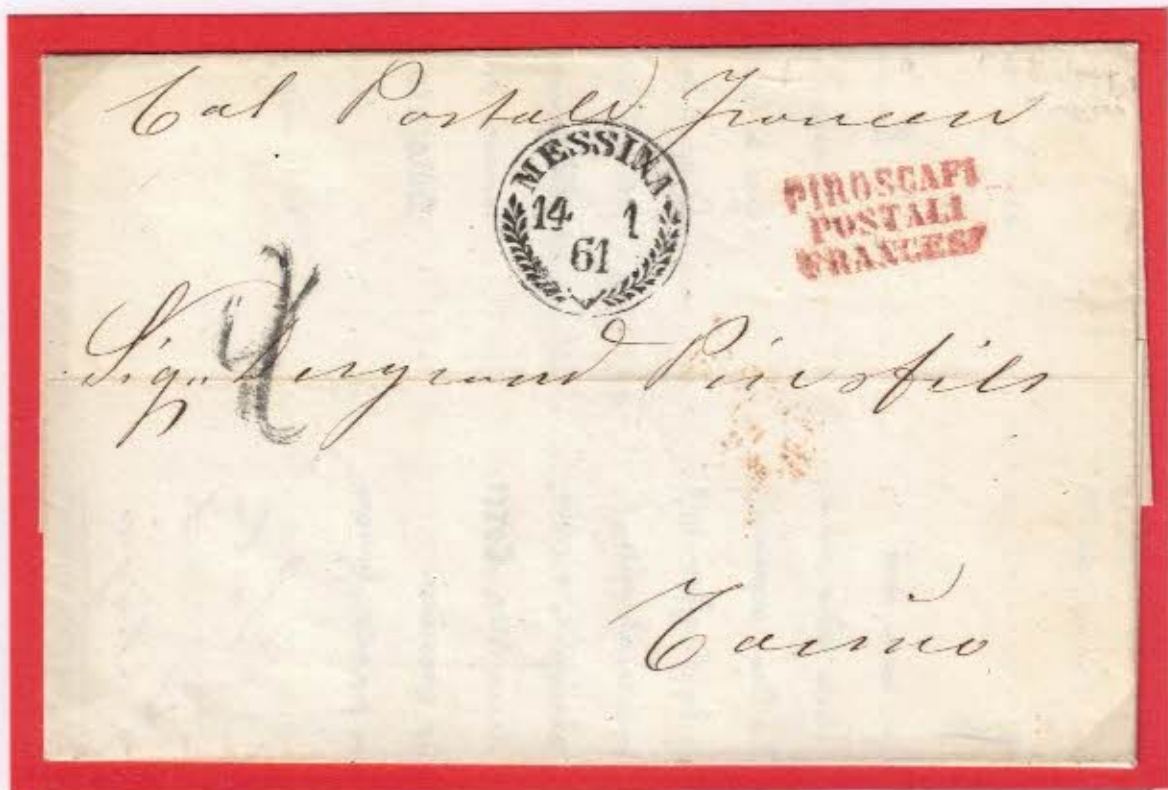 Col Postale Francese
MESSINA
14 1
61
PIROSCAFI
POSTALI
FRANCESI
Sig.ri Pères fils
Torino